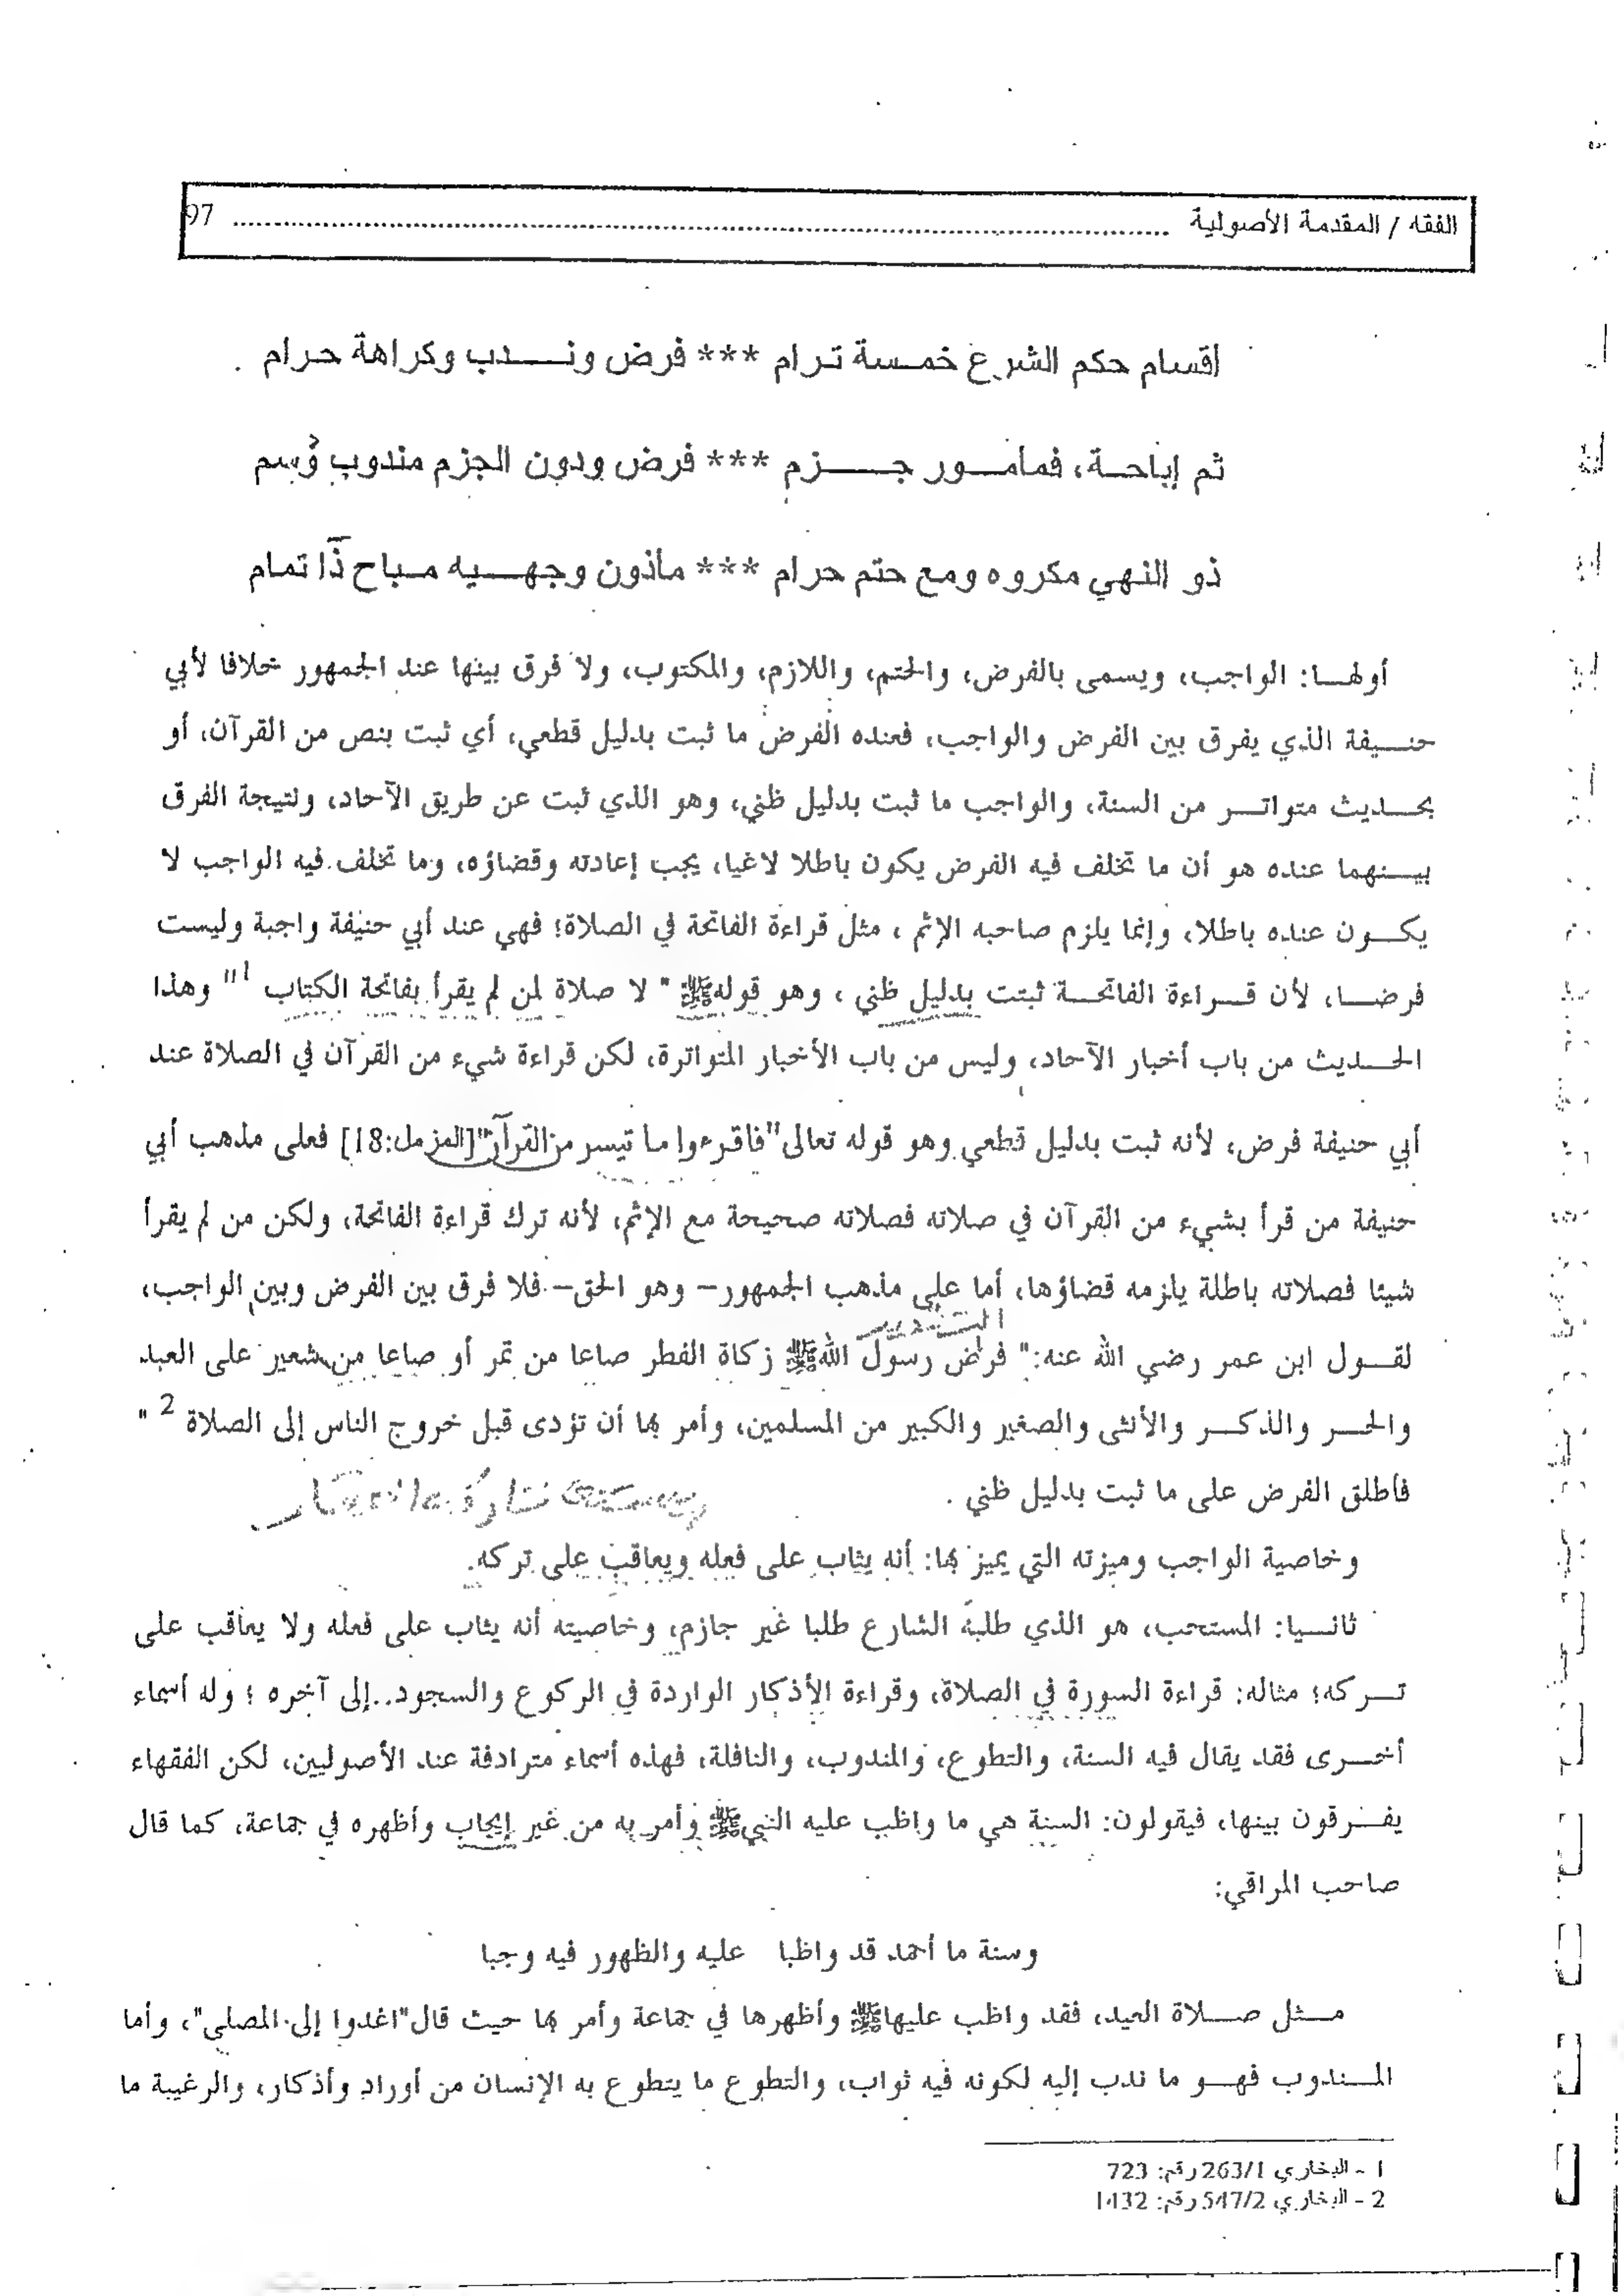 الفقه / المقدمة الأصولية ........................................ 97
أقسام حكم الشرع خمسة ترام *** فرض وندب وكراهة حرام
ثم إباحة، فمأمور جزم *** فرض ودون الجزم مندوب وُسم
ذو النهي مكروه ومع حتم حرام *** مأذون وجهيه مباح ذا تمام
أولها: الواجب، ويسمى بالفرض، والحتم، واللازم، والمكتوب، ولا فرق بينها عند الجمهور خلافا لأبي
حنيفة الذي يفرق بين الفرض والواجب، فعنده الفرض ما ثبت بدليل قطعي، أي ثبت بنص من القرآن، أو
بحديث متواتر من السنة، والواجب ما ثبت بدليل ظني، وهو الذي ثبت عن طريق الآحاد، ونتيجة الفرق
بينهما عنده هو أن ما تخلف فيه الفرض يكون باطلا لاغيا، يجب إعادته وقضاؤه، وما تخلف فيه الواجب لا
يكون عنده باطلا، وإنما يلزم صاحبه الإثم ، مثل قراءة الفاتحة في الصلاة؛ فهي عند أبي حنيفة واجبة وليست
فرضا، لأن قراءة الفاتحة ثبتت بدليل ظني ، وهو قوله ﷺ " لا صلاة لمن لم يقرأ بفاتحة الكتاب 1" وهذا
الحديث من باب أخبار الآحاد، وليس من باب الأخبار المتواترة، لكن قراءة شيء من القرآن في الصلاة عند
أبي حنيفة فرض، لأنه ثبت بدليل قطعي وهو قوله تعالى "فاقرءوا ما تيسر من القرآن" [المزمل:18] فعلى مذهب أبي
حنيفة من قرأ بشيء من القرآن في صلاته فصلاته صحيحة مع الإثم، لأنه ترك قراءة الفاتحة، ولكن من لم يقرأ
شيئا فصلاته باطلة يلزمه قضاؤها، أما على مذهب الجمهور– وهو الحق– فلا فرق بين الفرض وبين الواجب،
التقدير
لقول ابن عمر رضي الله عنه:" فرض رسول الله ﷺ زكاة الفطر صاعا من تمر أو صاعا من شعير على العبد
والحر والذكر والأنثى والصغير والكبير من المسلمين، وأمر بها أن تؤدى قبل خروج الناس إلى الصلاة 2 "
فأطلق الفرض على ما ثبت بدليل ظني .
وخاصية الواجب وميزته التي يميز بها: أنه يثاب على فعله ويعاقب على تركه.
ثانيا: المستحب، هو الذي طلبه الشارع طلبا غير جازم، وخاصيته أنه يثاب على فعله ولا يعاقب على
تركه؛ مثاله: قراءة السورة في الصلاة، وقراءة الأذكار الواردة في الركوع والسجود..إلى آخره ؛ وله أسماء
أخرى فقد يقال فيه السنة، والتطوع، والمندوب، والنافلة، فهذه أسماء مترادفة عند الأصوليين، لكن الفقهاء
يفرقون بينها، فيقولون: السنة هي ما واظب عليه النبي ﷺ وأمر به من غير إيجاب وأظهره في جماعة، كما قال
صاحب المراقي:
وسنة ما أحمد قد واظبا عليه والظهور فيه وجبا
مثل صلاة العيد، فقد واظب عليها ﷺ وأظهرها في جماعة وأمر بها حيث قال"اغدوا إلى المصلى"، وأما
المندوب فهو ما ندب إليه لكونه فيه ثواب، والتطوع ما يتطوع به الإنسان من أوراد وأذكار، والرغيبة ما
1 - البخاري 263/1 رقم: 723
2 - البخاري 547/2 رقم: 1432